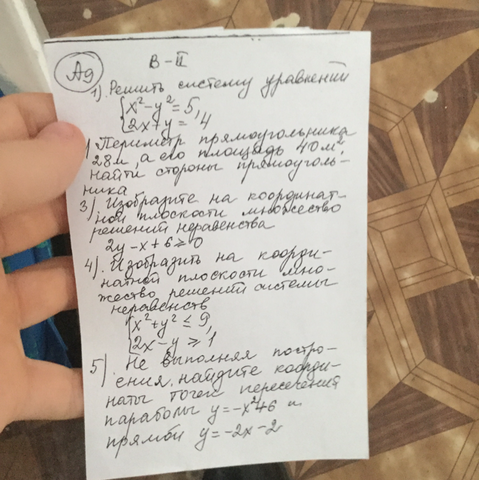 В-II
А9
1). Решить систему уравнений
{x²-y²=5,
2x+y=4
) Периметр прямоугольника
28м, а его площадь 40м²,
найти стороны прямоуголь-
ника
3) Изобразите на координат-
ной плоскости множество
решений неравенства
2y-x+6≥0
4). Изобразить на коорди-
натной плоскости мно-
жество решений системы
неравенств
{x²+y²≤9,
2x-y≥1
5). Не выполняя постро-
ения, найдите коорди-
наты точек пересечения
параболы y=-x²+6 и
прямой y=-2x-2